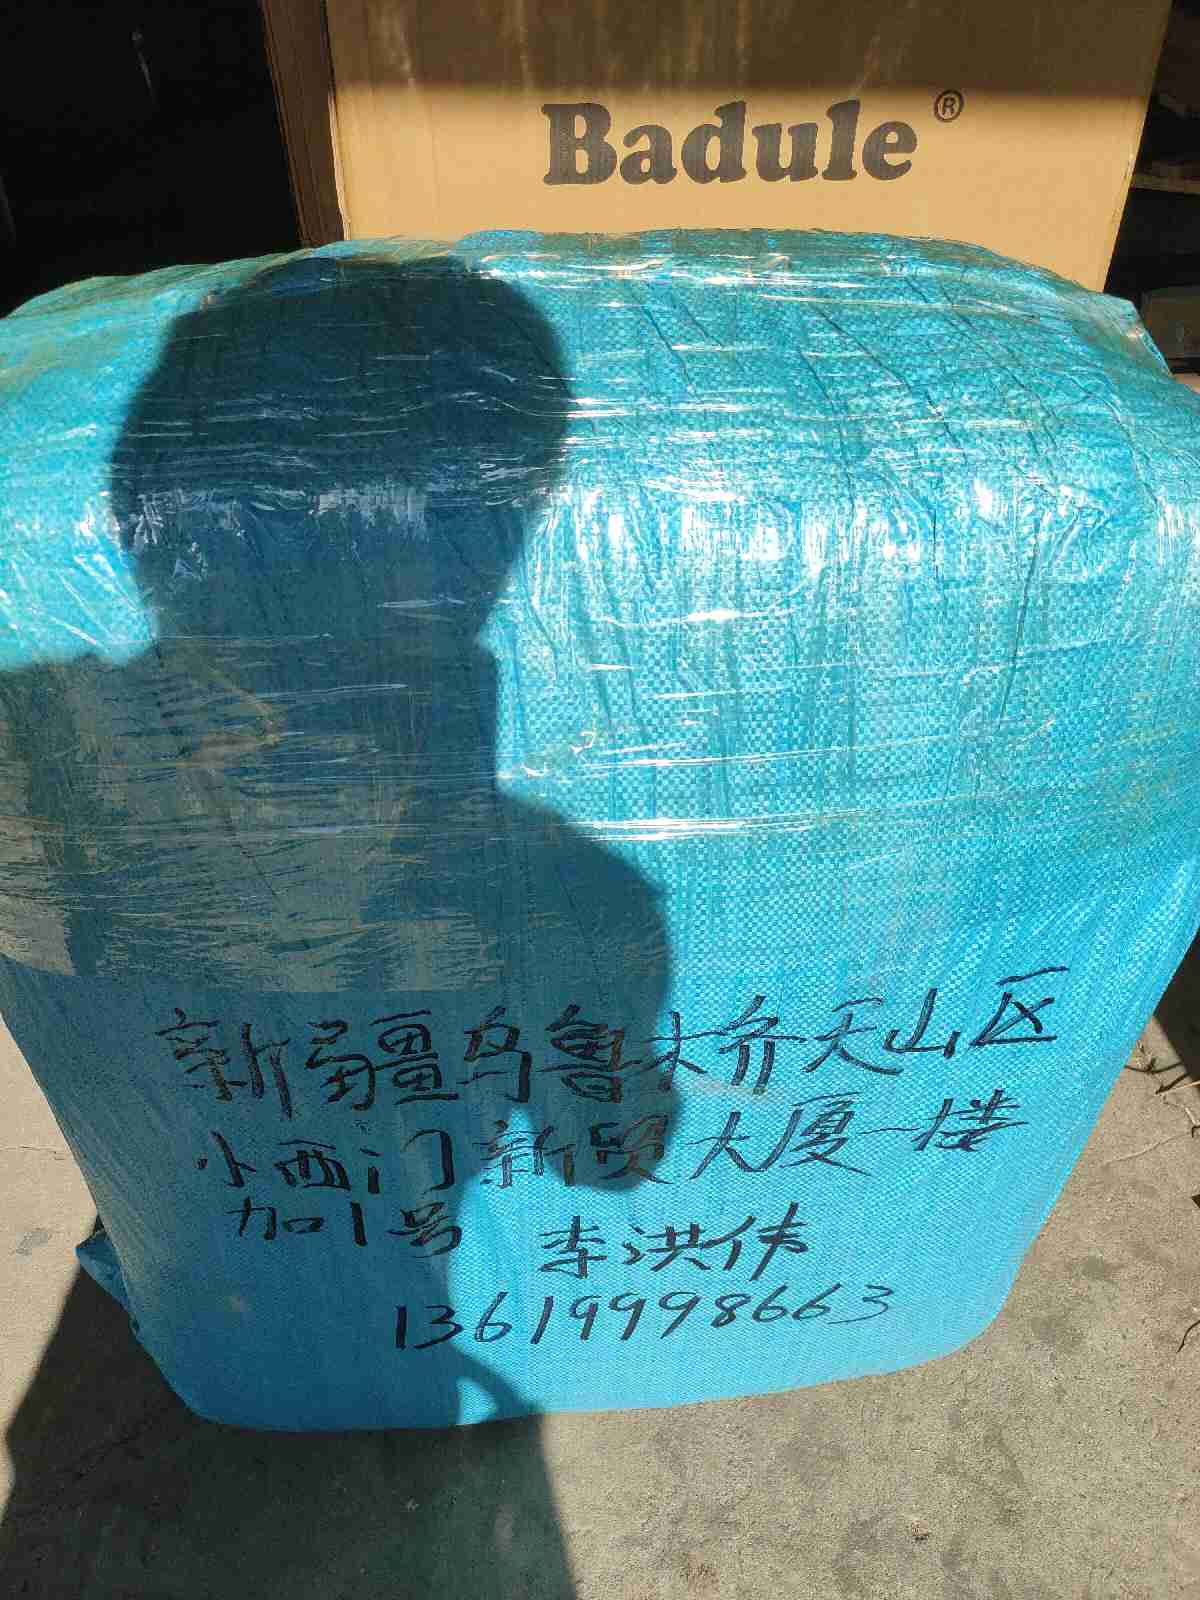 Badule®
新疆乌鲁木齐天山区
小西门新贸大厦一楼
加1号 李洪伟
13619998663